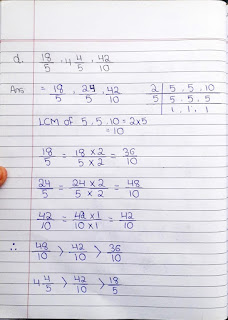 d. 18/5, 4 4/5, 42/10
Ans = 18/5, 24/5, 42/10
2 | 5, 5, 10
5 | 5, 5, 5
1, 1, 1
LCM of 5, 5, 10 = 2×5
= 10
18/5 = 18 × 2/5 × 2 = 36/10
24/5 = 24 × 2/5 × 2 = 48/10
42/10 = 42 × 1/10 × 1 = 42/10
∴ 48/10 > 42/10 > 36/10
4 4/5 > 42/10 > 18/5